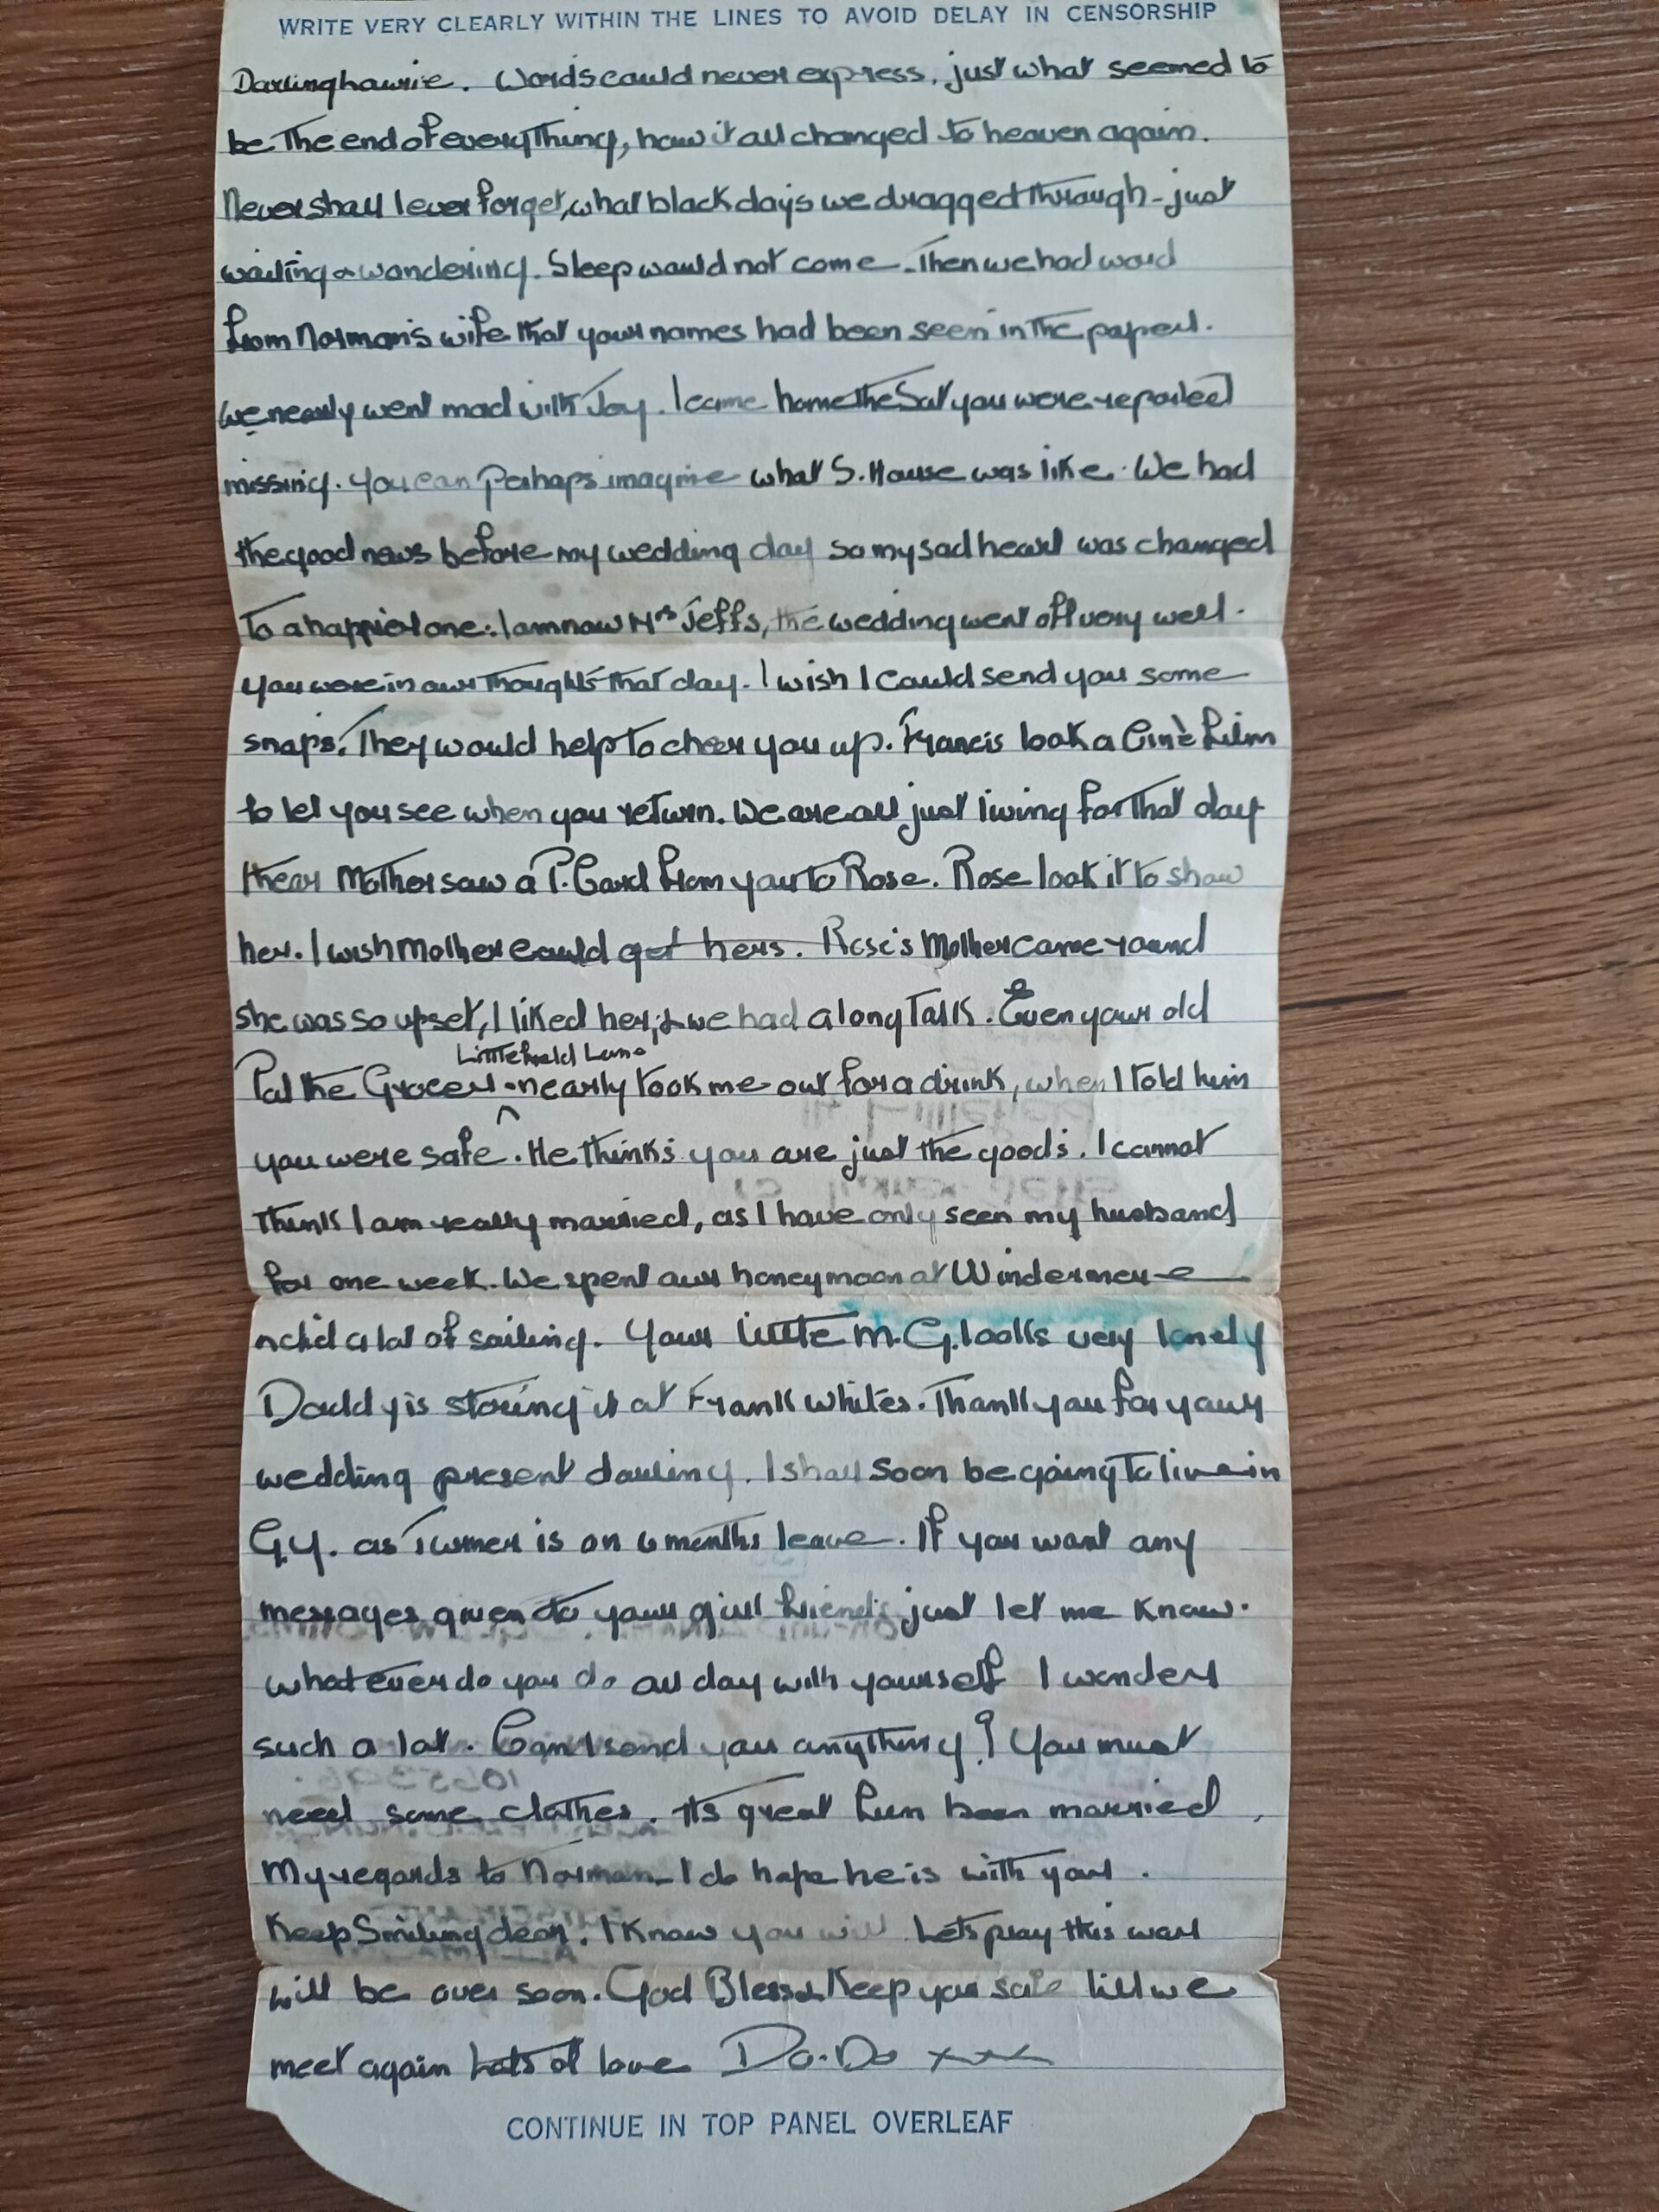 WRITE VERY CLEARLY WITHIN THE LINES TO AVOID DELAY IN CENSORSHIP
Darling Lawrie. Words could never express, just what seemed to
be the end of everything, how it all changed to heaven again.
Never shall I ever forget, what black days we dragged through - just
waiting & wondering. Sleep would not come. Then we had word
from Norman's wife that your names had been seen in the paper.
we nearly went mad with Joy. I came home the Sat you were reported
missing. You can perhaps imagine what S. House was like. We had
the good news before my wedding day so my sad heart was changed
to a happier one: I am now Mrs Jeffs, the wedding went off very well.
You were in our thoughts that day. I wish I could send you some
snaps. They would help to cheer you up. Francis took a Cinè film
to let you see when you return. We are all just living for that day
I hear Mother saw a P. Card from you to Rose. Rose took it to show
her. I wish Mother could get hers. Rose's Mother came round
she was so upset, I liked her, & we had a long talk. Even your old
Littlefield Lane
Pal the Grocer - nearly took me out for a drink, when I told him
you were safe. He thinks you are just the goods. I cannot
think I am really married, as I have only seen my husband
for one week. We spent our honeymoon at Windermere
did a lot of sailing. Your little M.G. looks very lonely
Daddy is storing it at Frank Whites. Thank you for your
wedding present darling. I shall soon be going to live in
G.Y. as Turner is on 6 months leave. If you want any
messages given to your girl friends just let me know.
whatever do you do all day with yourself I wonder
such a lot. Can I send you anything? You must
need some clothes. Its great fun been married,
My regards to Norman. I do hope he is with you.
Keep Smiling dear. I know you will. Lets pray this war
will be over soon. God Bless & Keep you safe till we
meet again Lots of love Do-Do xxx
CONTINUE IN TOP PANEL OVERLEAF